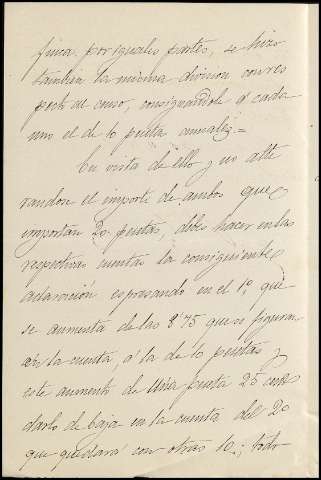 finca por iguales partes, se hizo
tambien la misma division con res
pecto al censo, consignandole a cada
uno el de 10 pesetas anuales =
En vista de ello y no alte
randose el importe de ambos que
importan 20 pesetas, debes hacer en las
respectivas cuentas la consiguiente
aclaración espresando en el 1º que
se aumenta de las 8'75 que se figuran
en la cuenta, á la de 10 pesetas y
este aumento de una peseta 25 cents
darlo de baja en la cuenta del 2º
que quedará con otras 10; todo